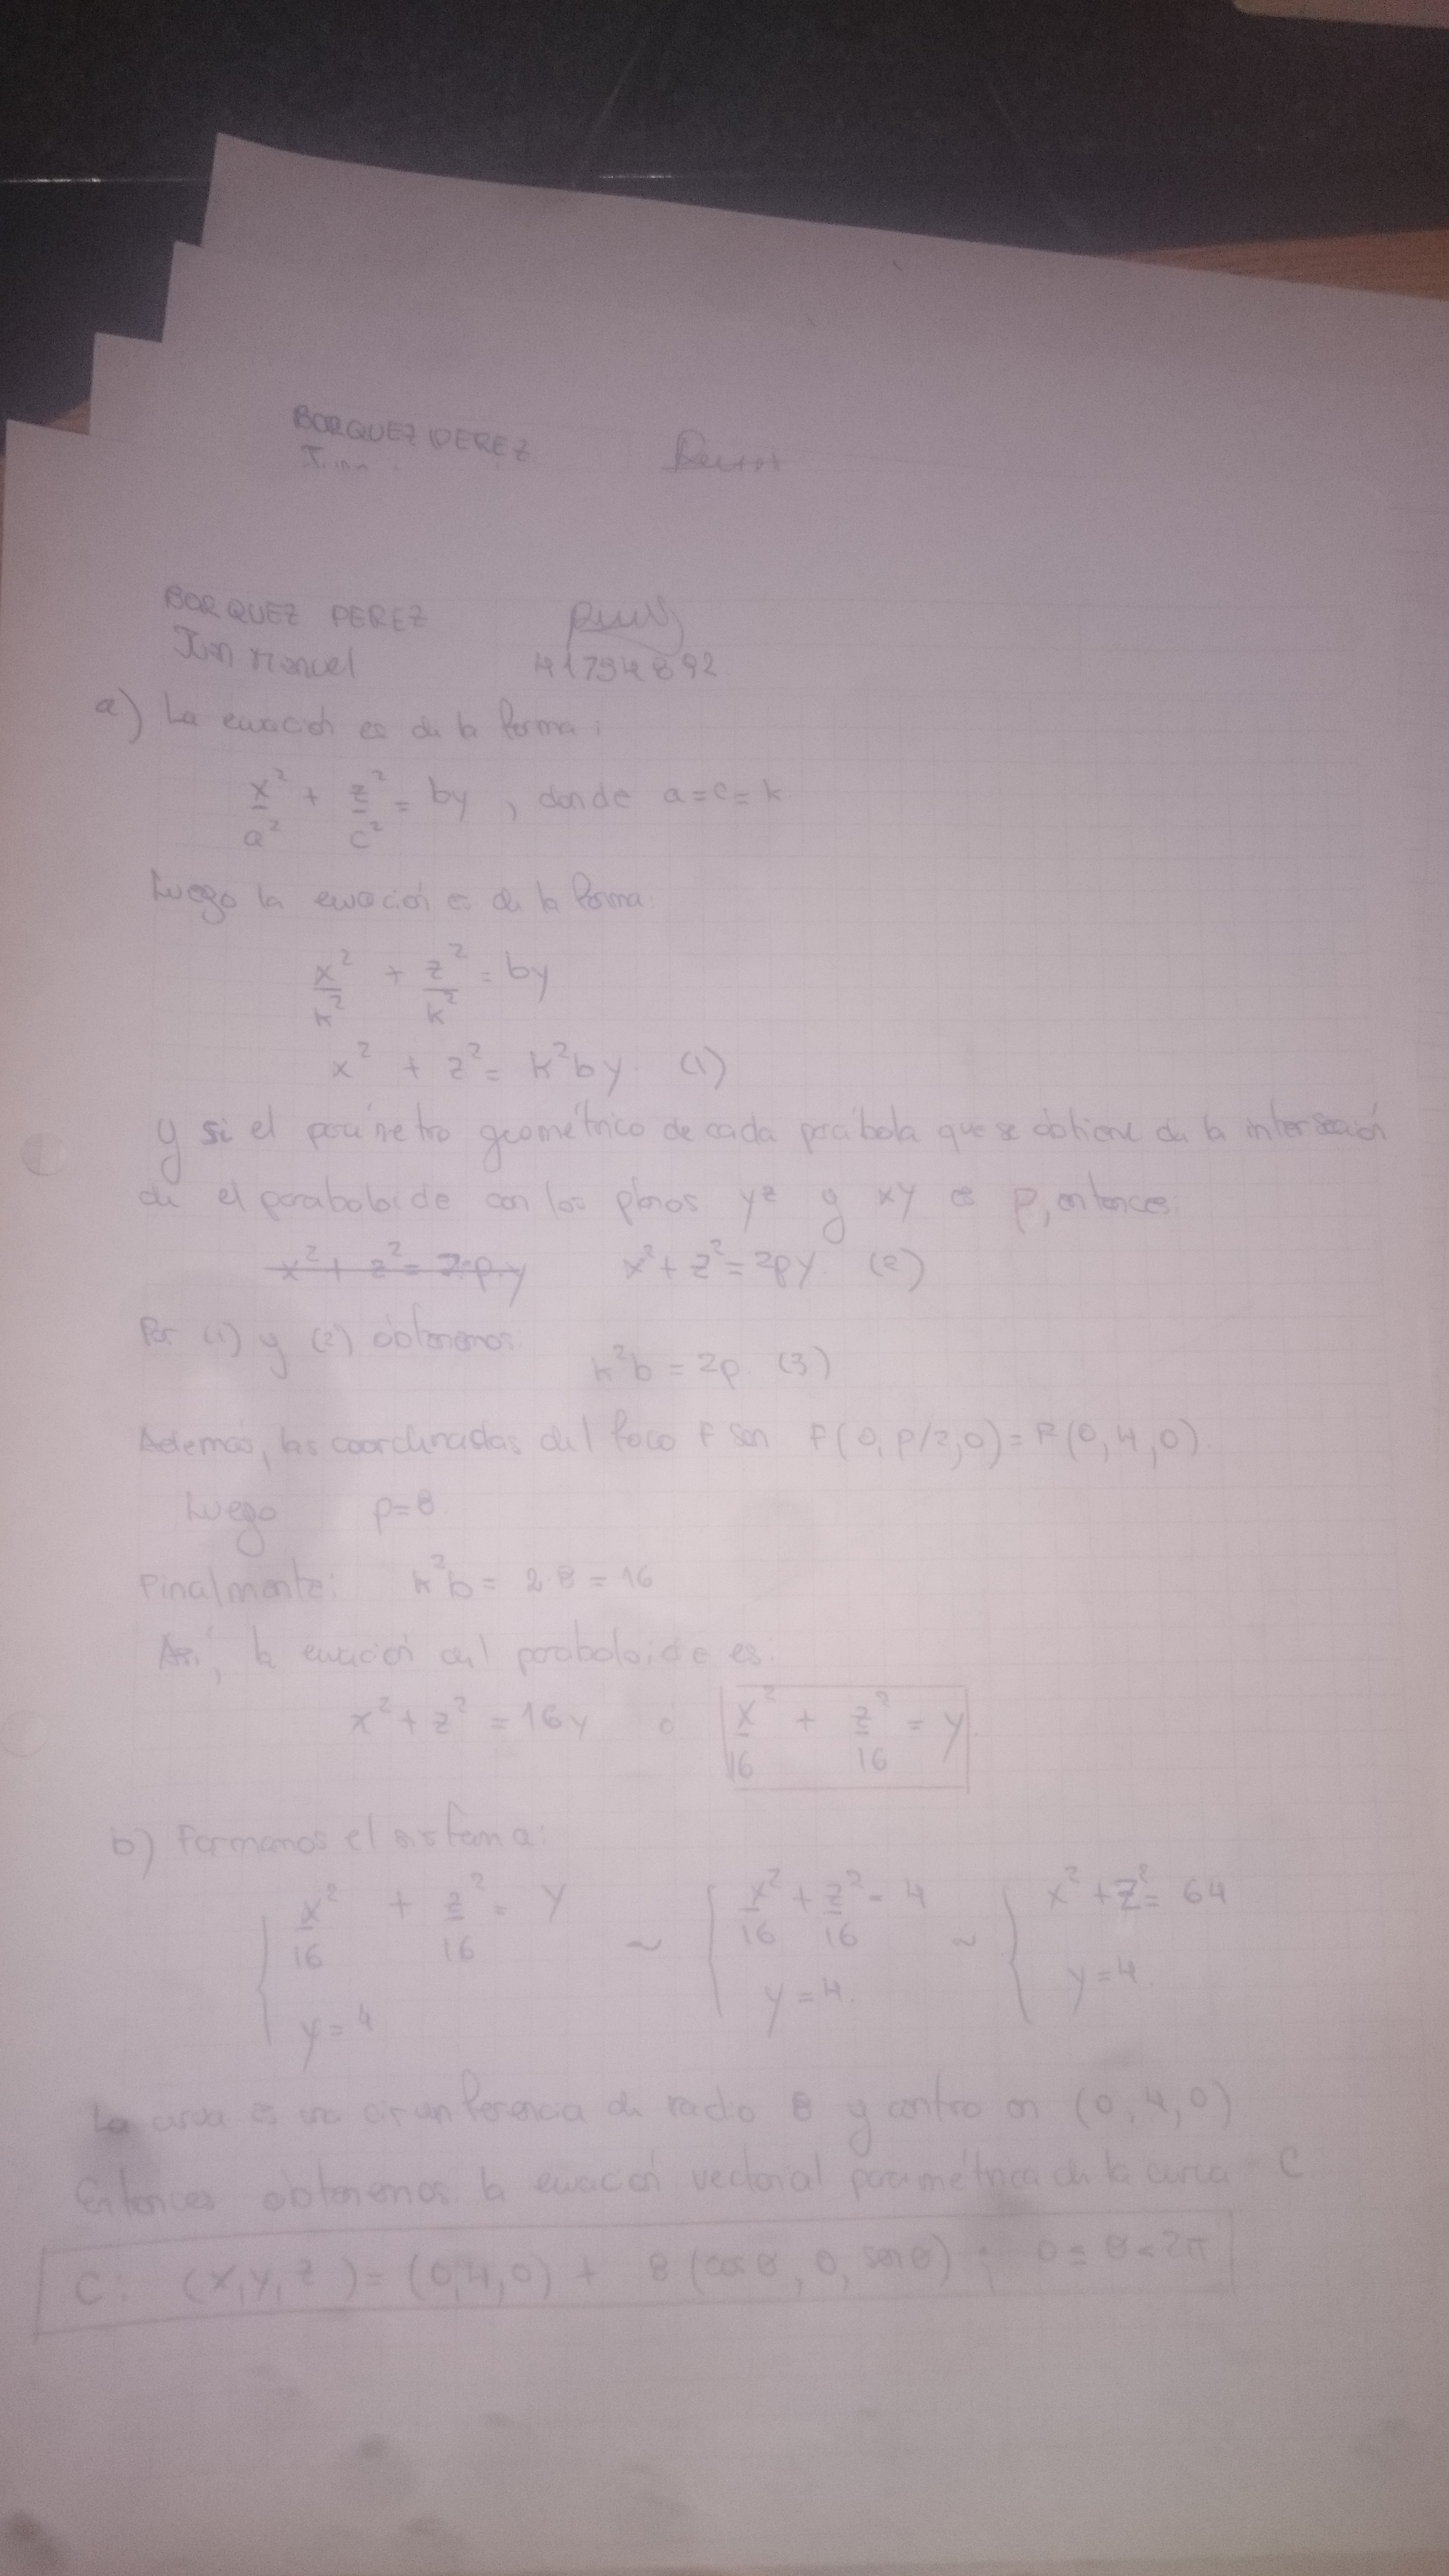 BORQUEZ PEREZ
BORQUEZ PEREZ
Juan Manuel 41794892
a) La ecuación es de la forma:
x²/a² + z²/c² = by, donde a=c=k.
Luego la ecuación es de la forma:
x²/k² + z²/k² = by
x² + z² = k²by. (1)
y si el parámetro geométrico de cada parábola que se obtiene de la intersección
de el paraboloide con los planos yz y xy es p, entonces:
x² + z² = 2·p·y x² + z² = 2py. (2)
Por (1) y (2) obtenemos:
k²b = 2p. (3)
Además, las coordenadas del foco F son F(0, p/2, 0) = F(0, 4, 0).
Luego p=8.
Finalmente: k²b = 2·8 = 16
Así, la ecuación del paraboloide es:
x² + z² = 16y ó x²/16 + z²/16 = y.
b) Formamos el sistema:
{ x²/16 + z²/16 = y ~ { x²/16 + z²/16 = 4 ~ { x² + z² = 64
y = 4 y = 4. y = 4.
La curva es una circunferencia de radio 8 y centro en (0, 4, 0)
Entonces obtenemos la ecuación vectorial paramétrica de la curva C:
C: (x, y, z) = (0, 4, 0) + 8 (cos θ, 0, sen θ) ; 0 ≤ θ < 2π